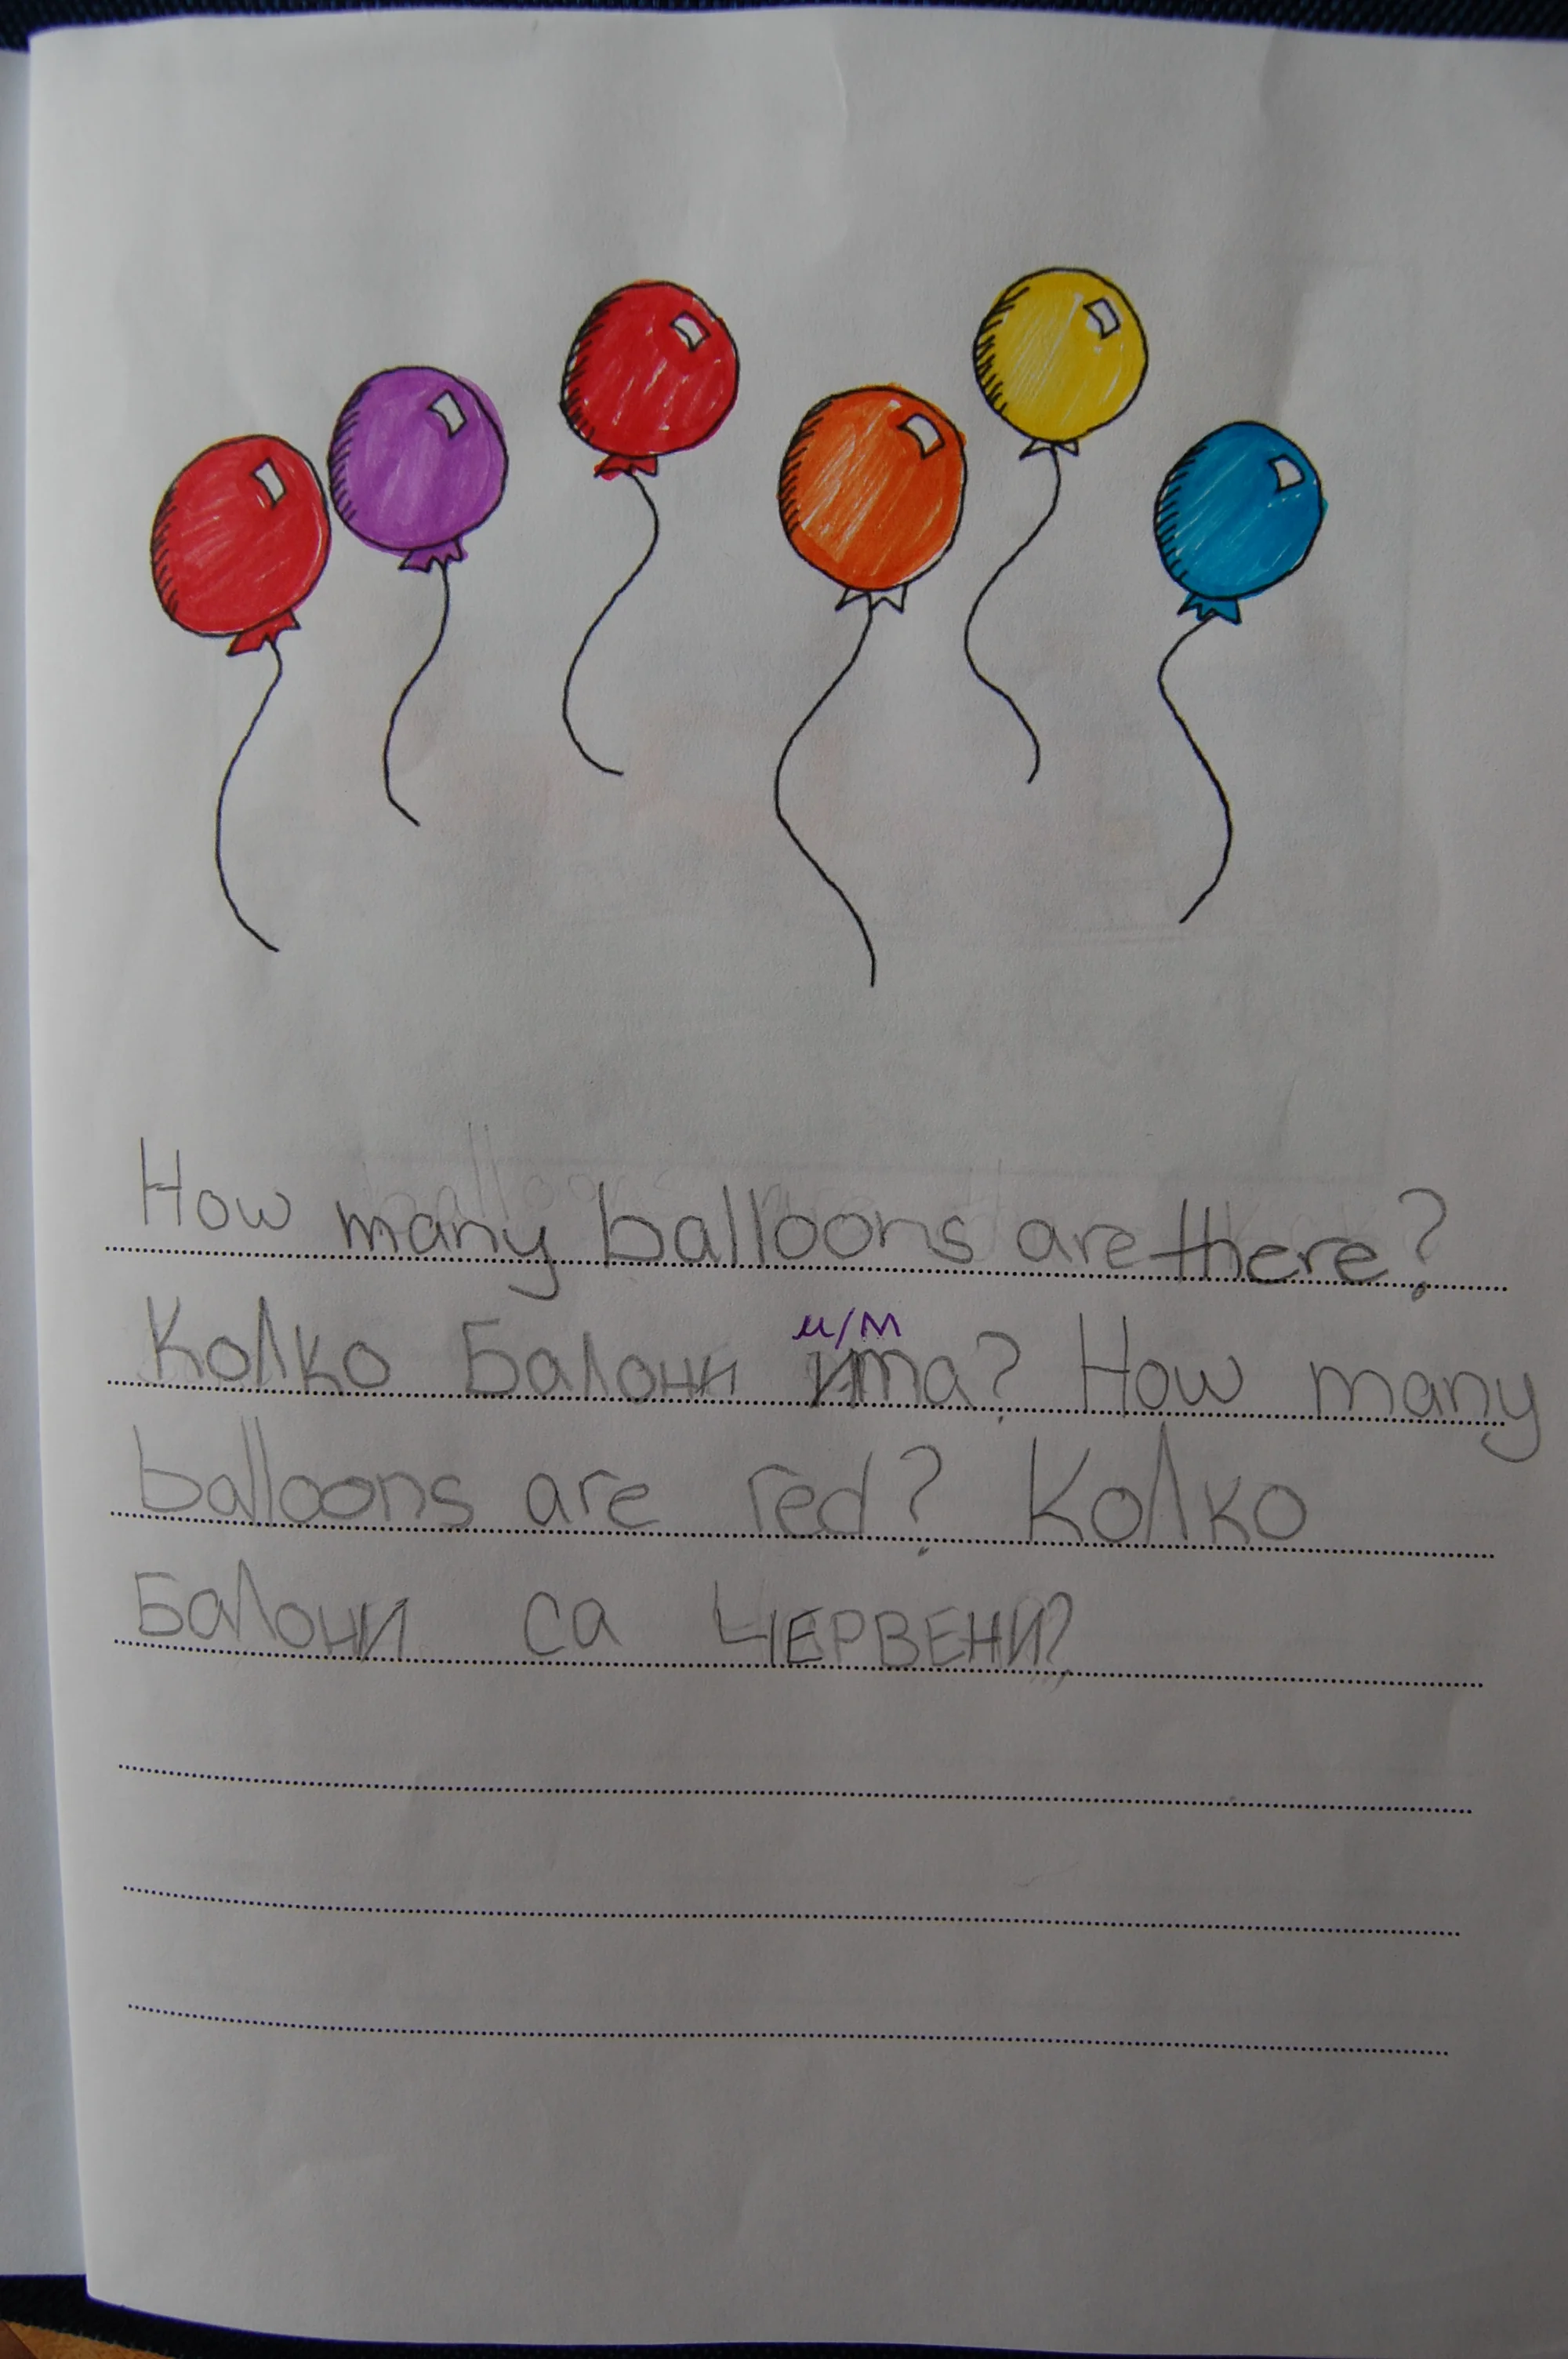 How many balloons are there?
и/м
Колко Балони има? How many
balloons are red? Колко
Балони са ЧЕРВЕНИ?